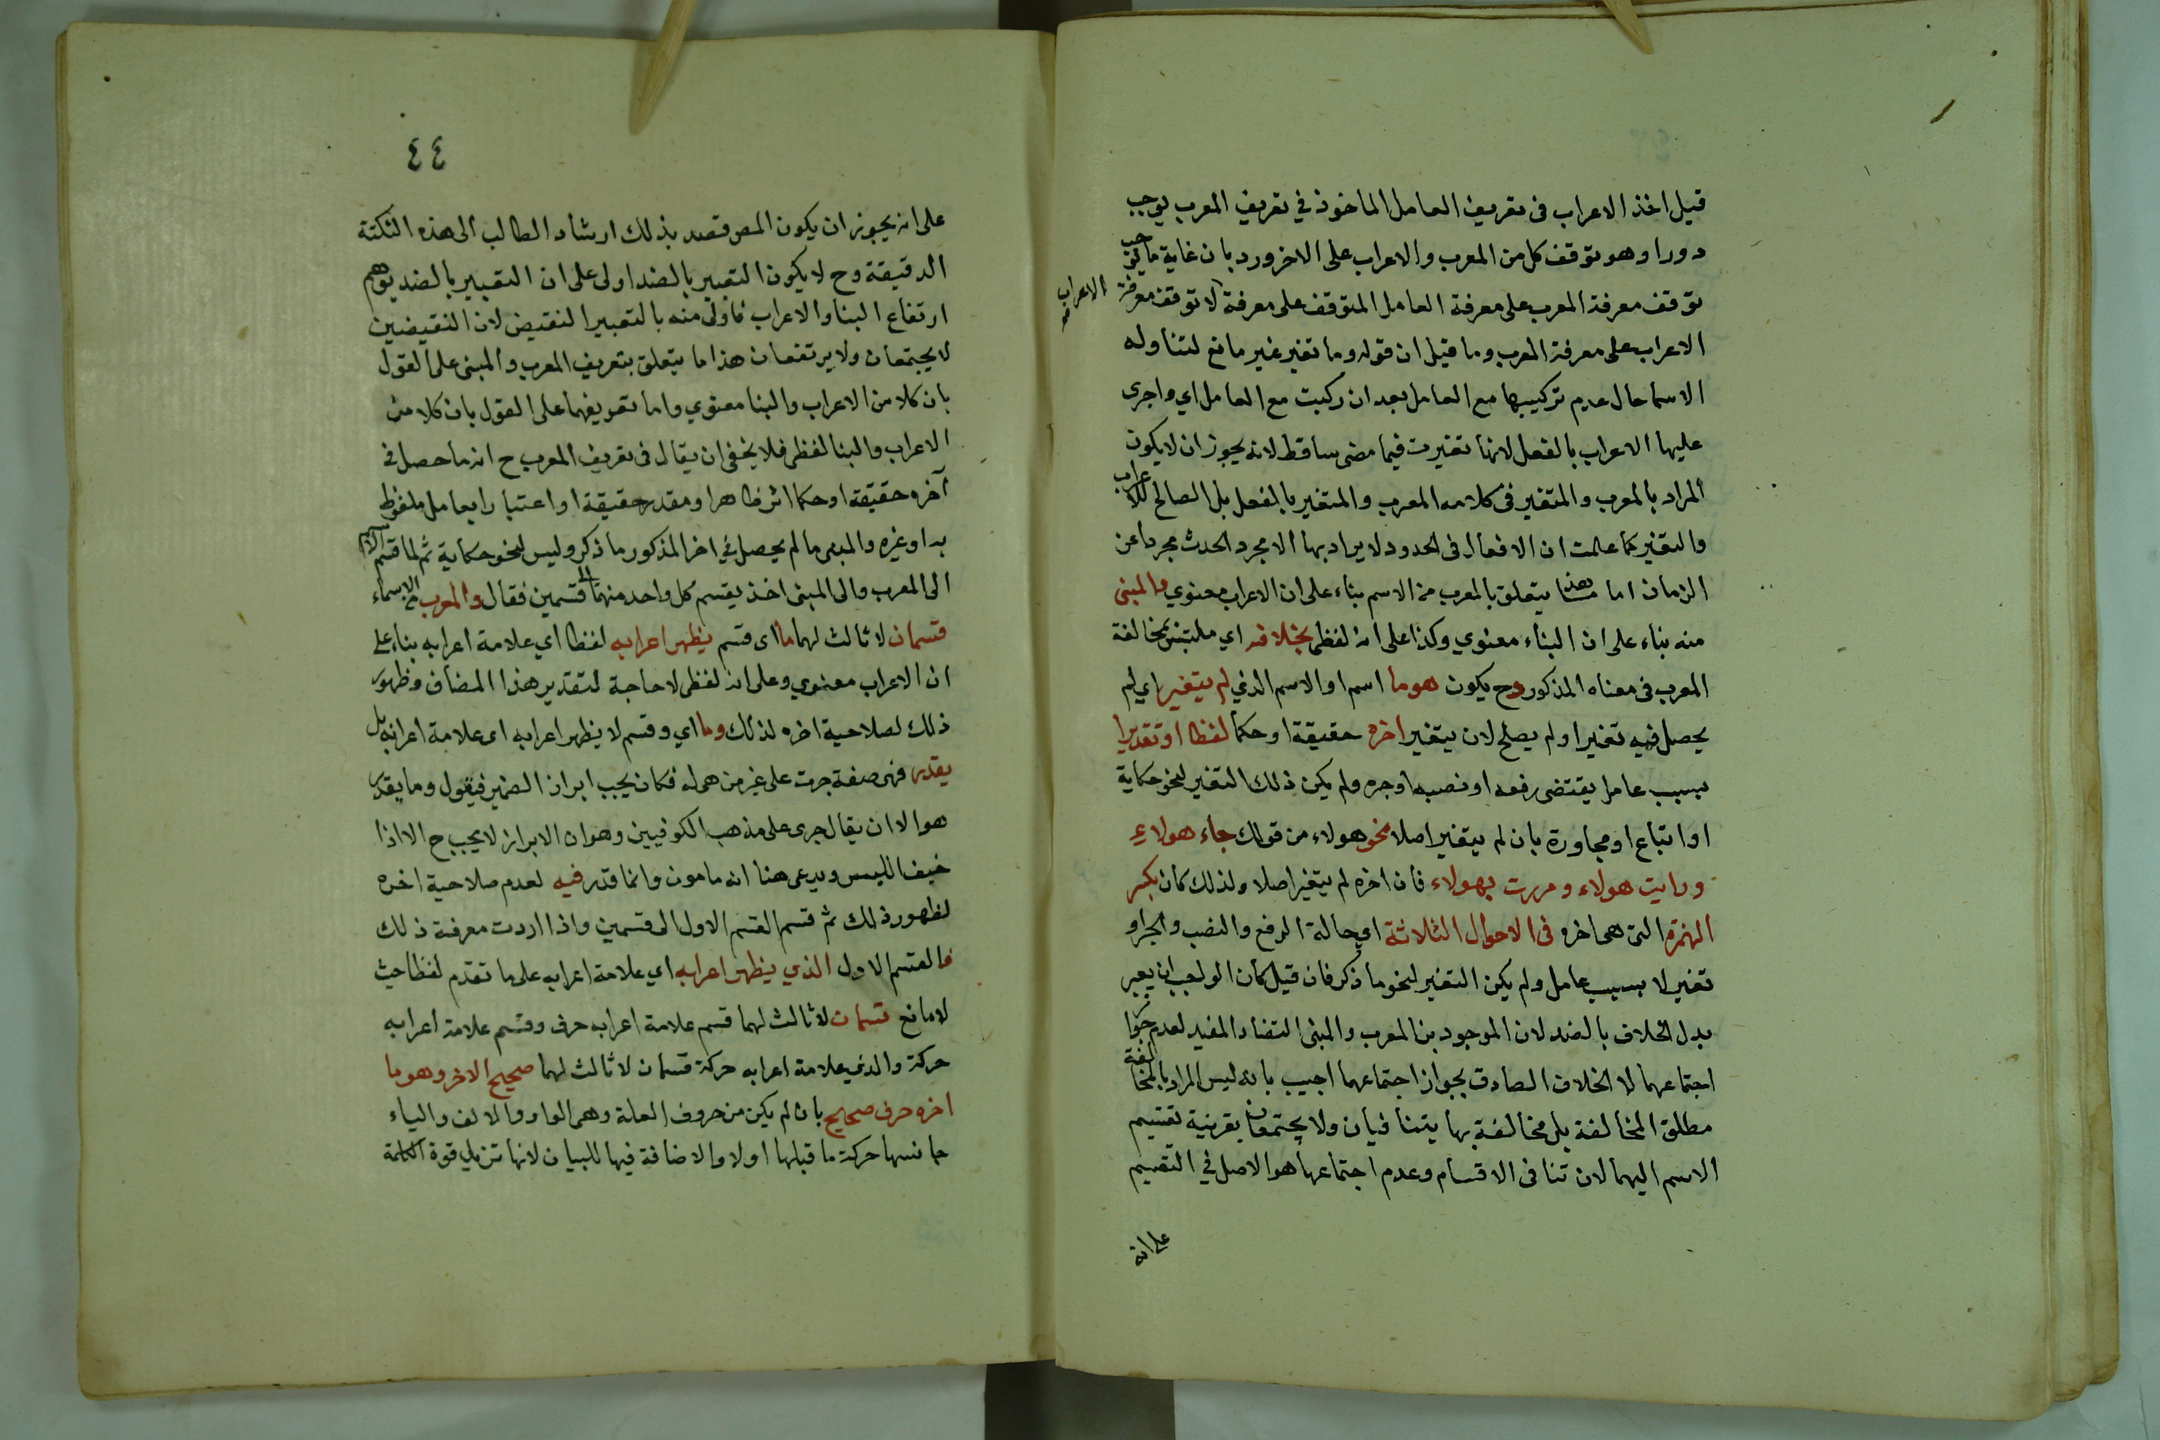 قيل اخذ الاعراب فى تعريف العامل الماخوذ في تعريف المعرب يوجب
دورا وهو توقف كل من المعرب والاعراب على الاخر ورد بان غاية ما يوجب
توقف معرفة المعرب على معرفة العامل المتوقف على معرفة الاعراب لا توقف معرفة
الاعراب على معرفة المعرب وما قيل ان قوله وما تغير غير مانع لتناوله
الاسما حال عدم تركيبها مع العامل بعد ان ركبت مع العامل اي واجرى
عليها الاعراب بالفعل لانها تغيرت فيما مضى ساقط لانه يجوز ان لا يكون
المراد بالمعرب والمتغير فى كلامه المعرب والمتغير بالفعل بل الصالح للاعراب
والتغير كما علمت ان الافعال فى الحدود لا يراد بها الا مجرد الحدث مجردا عن
الزمان اما هذا يتعلق بالمعرب من الاسم بناء على ان الاعراب معنوي والمبنى
منه بناء على ان البناء معنوي وكذا على انه لفظى بخلافه اي ملتبس بمخالفة
المعرب فى معناه المذكور وح يكون هو ما اسم او الاسم الذي لم يتغير اي لم
يحصل فيه تغير او لم يصلح لان يتغير اخره حقيقة او حكما لفظا او تقديرا
بسبب عامل يقتضى رفعه او نصبه او جره ولم يكن ذلك التغير لنحو حكاية
او اتباع او مجاورة بان لم يتغير اصلا نحو هولاء من قولك جاء هولاء
ورايت هولاء ومررت بهولاء فان اخره لم يتغير اصلا ولذلك كان بكسر
الهمزة التى هى اخره فى الاحوال الثلاثة اي حالة الرفع والنصب والجر او
تغير لا بسبب عامل ولم يكن التغير لنحو ما ذكر فان قيل كان الواجب ان يعبر
بدل الخلاف بالضد لان الموجود بين المعرب والمبنى التضاد المفيد لعدم جواز
اجتماعهما لا الخلاف الصادق بجواز اجتماعهما اجيب بانه ليس المراد بالمخالفة
مطلق المخالفة بل مخالفة بها يتنافيان ولا يجتمعان بقرينة تقسيم
الاسم اليهما لان تنافى الاقسام وعدم اجتماعها هو الاصل في التقسيم
على انه
٤٤
على انه يجوز ان يكون المص قصد بذلك ارشاد الطالب الى هذه النكتة
الدقيقة وح لا يكون التعبير بالضد اولى على ان التعبير بالضد يوهم
ارتفاع البنا والاعراب فاولى منه بالتعبير النقيض لان النقيضين
لا يجتمعان ولا يرتفعان هذا ما يتعلق بتعريف المعرب والمبنى على القول
بان كلا من الاعراب والبنا معنوي واما تعريفهما على القول بان كلا من
الاعراب والبنا لفظى فلا يخفى ان يقال فى تعريف المعرب ح انه ما حصل فى
آخره حقيقة او حكما اثر ظاهر او مقدر حقيقة او اعتبارا بعامل ملفوظ
به او غيره والمبنى ما لم يحصل في اخر المذكور ما ذكر وليس لنحو حكاية ثم لما قسم الاسم
الى المعرب والى المبنى اخذ يقسم كل واحد منهما الى قسمين فقال والمعرب من الاسماء
قسمان لا ثالث لهما ما اى قسم يظهر اعرابه لفظا اي علامة اعرابه بناء على
ان الاعراب معنوي وعلى انه لفظى لا حاجة لتقدير هذا المضاف وظهور
ذلك لصلاحية اخره لذلك وما اي وقسم لا يظهر اعرابه اى علامة اعرابه بل
يقدر فهى صفة جرت على غير من هى له فكان يجب ابراز الضمير فيقول وما يقدر
هو الا ان يقال جرى على مذهب الكوفيين وهو ان الابراز لا يجب ح الا اذا
خيف اللبس ويدعى هنا انه مامون وانما قدر فيه لعدم صلاحية اخره
لظهور ذلك ثم قسم القسم الاول الى قسمين واذا اردت معرفة ذلك
فالقسم الاول الذي يظهر اعرابه اي علامة اعرابه على ما تقدم لفظا حيث
لا مانع قسمان لا ثالث لهما قسم علامة اعرابه حرف وقسم علامة اعرابه
حركة والذي علامة اعرابه حركة قسمان لا ثالث لهما صحيح الاخر وهو ما
اخره حرف صحيح بان لم يكن من حروف العلة وهى الواو والالف والياء
جانسها حركة ما قبلها اولا والاضافة فيها للبيان لانها تزيل قوة الكلمة